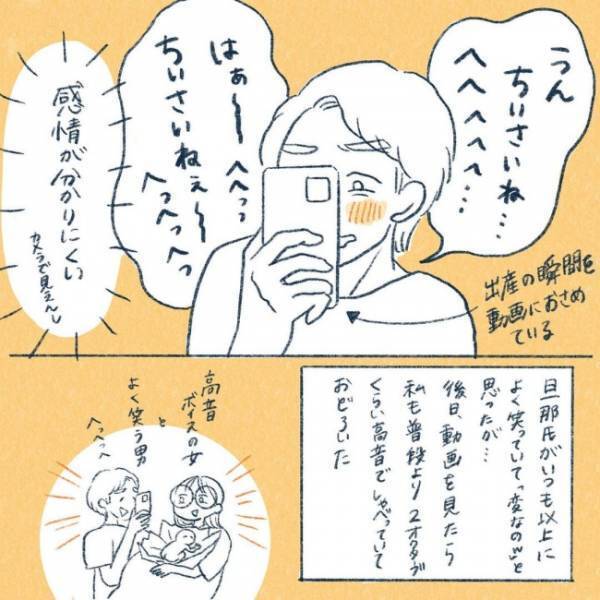 うん
ちいさいね…
へへへへへ…
はぁ〜〜へへっっ
ちいさいねぇ〜〜
へっへっへっ
感情が分かりにくい
カメラで見えんし
出産の瞬間を
動画におさめ
ている
旦那氏がいつも以上に
よく笑っていて"変なの"と
思ったが…
後日、動画を見たら
私も普段より2オクターブ
くらい高音でしゃべっていて
おどろいた
高音
ボイスの女
と
よく笑う男
へっへっへ